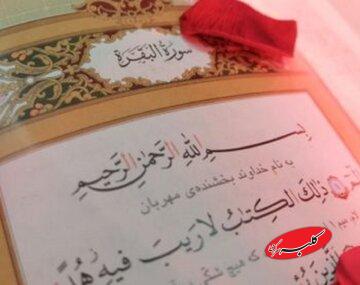 سورة البقرة
بِسْمِ اللهِ الرَّحْمٰنِ الرَّحِيمِ
به نام خداوند بخشنده‌ی مهربان
ذٰلِكَ الْكِتَابُ لَا رَيْبَ فِيهِ
که هیچ
کلبه